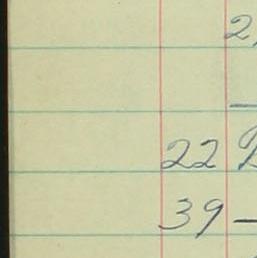 2,
22
39 —